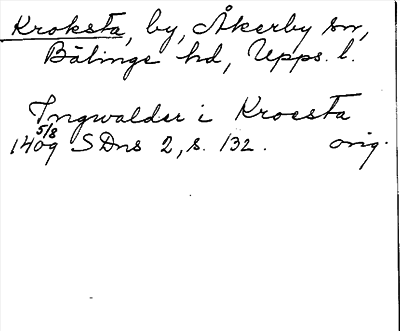 Kroksta, by, Åkerby sn,
Bälinge hd, Upps. l.
Ingwalder i Krocsta
5/8
1409 SDns 2, s. 132. orig.